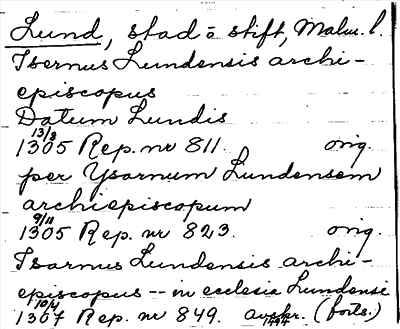 Lund, stad o stift, Malm. l.
Isernus Lundensis archi-
episcopus
Datum Lundis
13/8
1305 Rep. nr 811. orig.
per Ysarnum Lundensem
archiepiscopum
9/11
1305 Rep. nr 823. orig.
Isarnus Lundensis archi-
episcopus -- in ecclesia Lundensi
10/4
1307 Rep. nr 849. avskr. (forts.)